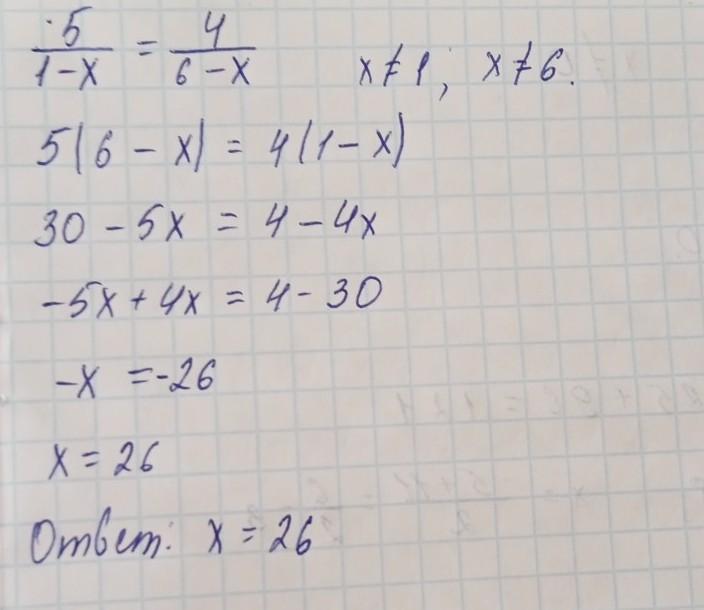 5/(1-x) = 4/(6-x) x≠1; x≠6.
5(6-x) = 4(1-x)
30-5x = 4-4x
-5x+4x = 4-30
-x = -26
x = 26
Ответ: x = 26